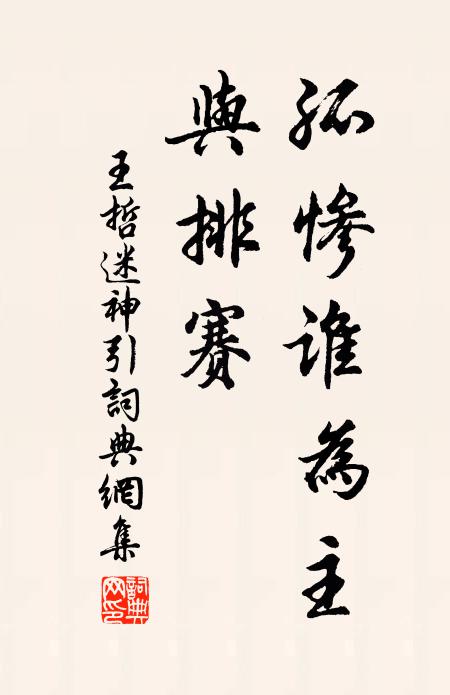 孤慘誰為主
與排賽
王哲迷神引詞典網集
詞典网印